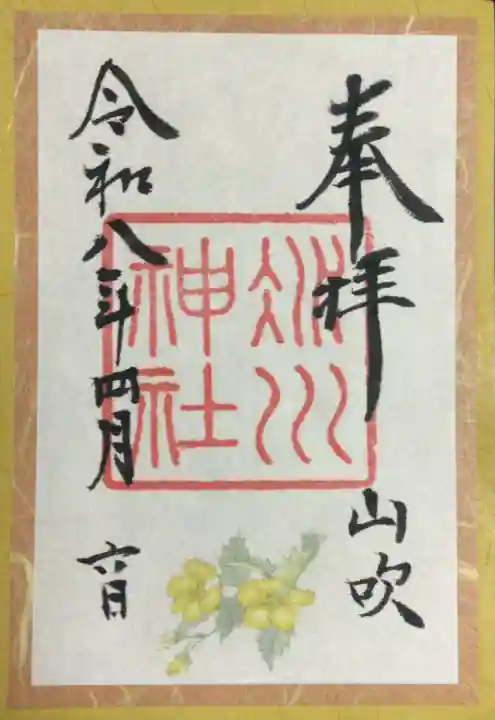 奉拝
山吹
冰川
神社
令和八年四月
六日